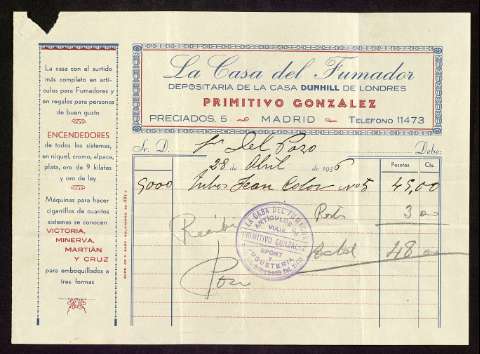 La casa con el surtido
más completo en artí-
culos para Fumadores y
en regalos para personas
de buen gusto
ENCENDEDORES
de todos los sistemas,
en niquel, cromo, alpaca,
plata, oro de 9 kilates
y oro de ley
Máquinas para hacer
cigarrillos de cuantos
sistemas se conocen
VICTORIA,
MINERVA,
MARTIÁN
Y CRUZ
para emboquillados a
tres formas
La Casa del Fumador
DEPOSITARIA DE LA CASA DUNHILL DE LONDRES
PRIMITIVO GONZALEZ
PRECIADOS, 5 MADRID TELEFONO 11473
Sr. D. del Pozo Debe:
28 de Abril de 1936
Pesetas Cts.
5000 tubos Jean Color nº 5 45,00
Recibí Ports 3 00
Total 48 00
LA CASA DEL FUMADOR
ARTICULOS
VIAJE
PRIMITIVO GONZALEZ
SPORT
Y
JUGUETERIA